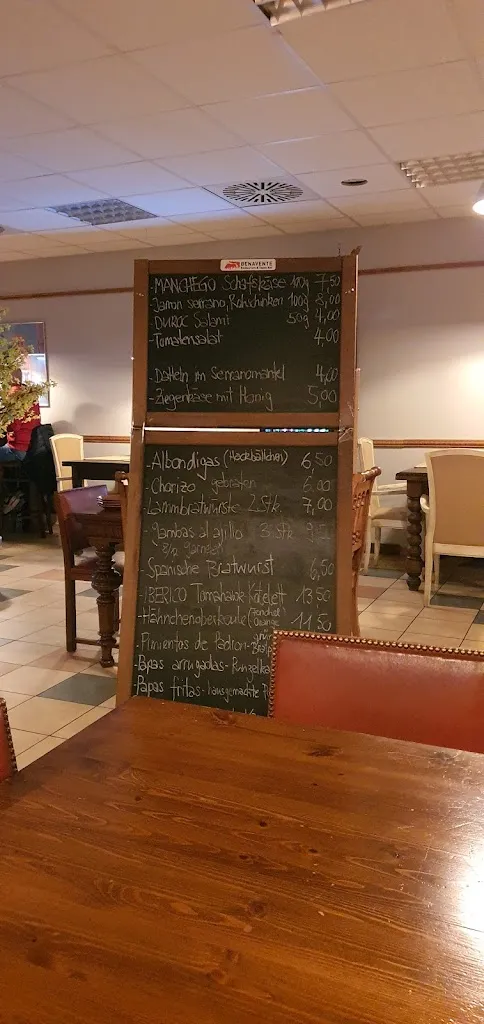 BENAVENTE
- MANCHEGO Schafskäse 100g 7,50
- Jamon serrano, Rohschinken 100g 8,00
- DUROC Salami 50g 4,00
- Tomatensalat 4,00
- Datteln im Serranomantel 4,00
- Ziegenkäse mit Honig 5,00
- Albondigas (Hackbällchen) 6,50
- Chorizo gebraten 6,00
- Lammbratwürste 2 Stk. 7,00
- Gambas al ajillo
- Spanische Bratwurst 6,50
- IBERICO Tomahawk-Kotelett 13,50
- Hähnchenoberkeule Orange 11,50
- Pimientos de Padron-
- Papas arrugadas-
- Papas fritas- hausgemachte